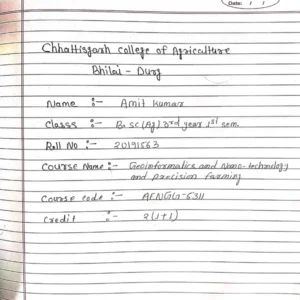 Date: / /
Chhattisgarh college of Agriculture
Bhilai - Durg
Name :- Amit kumar
Classs :- B.sc (Ag) 3rd year 1st sem.
Roll No :- 20191563
Course Name :- Geoinformatics and Nano-technology
and Precision farming
Course code :- AENGG-5311
Credit :- 2(1+1)